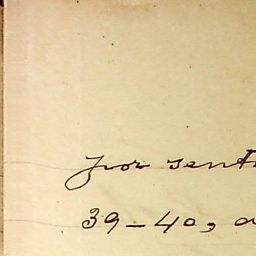 por sent
39-40, a